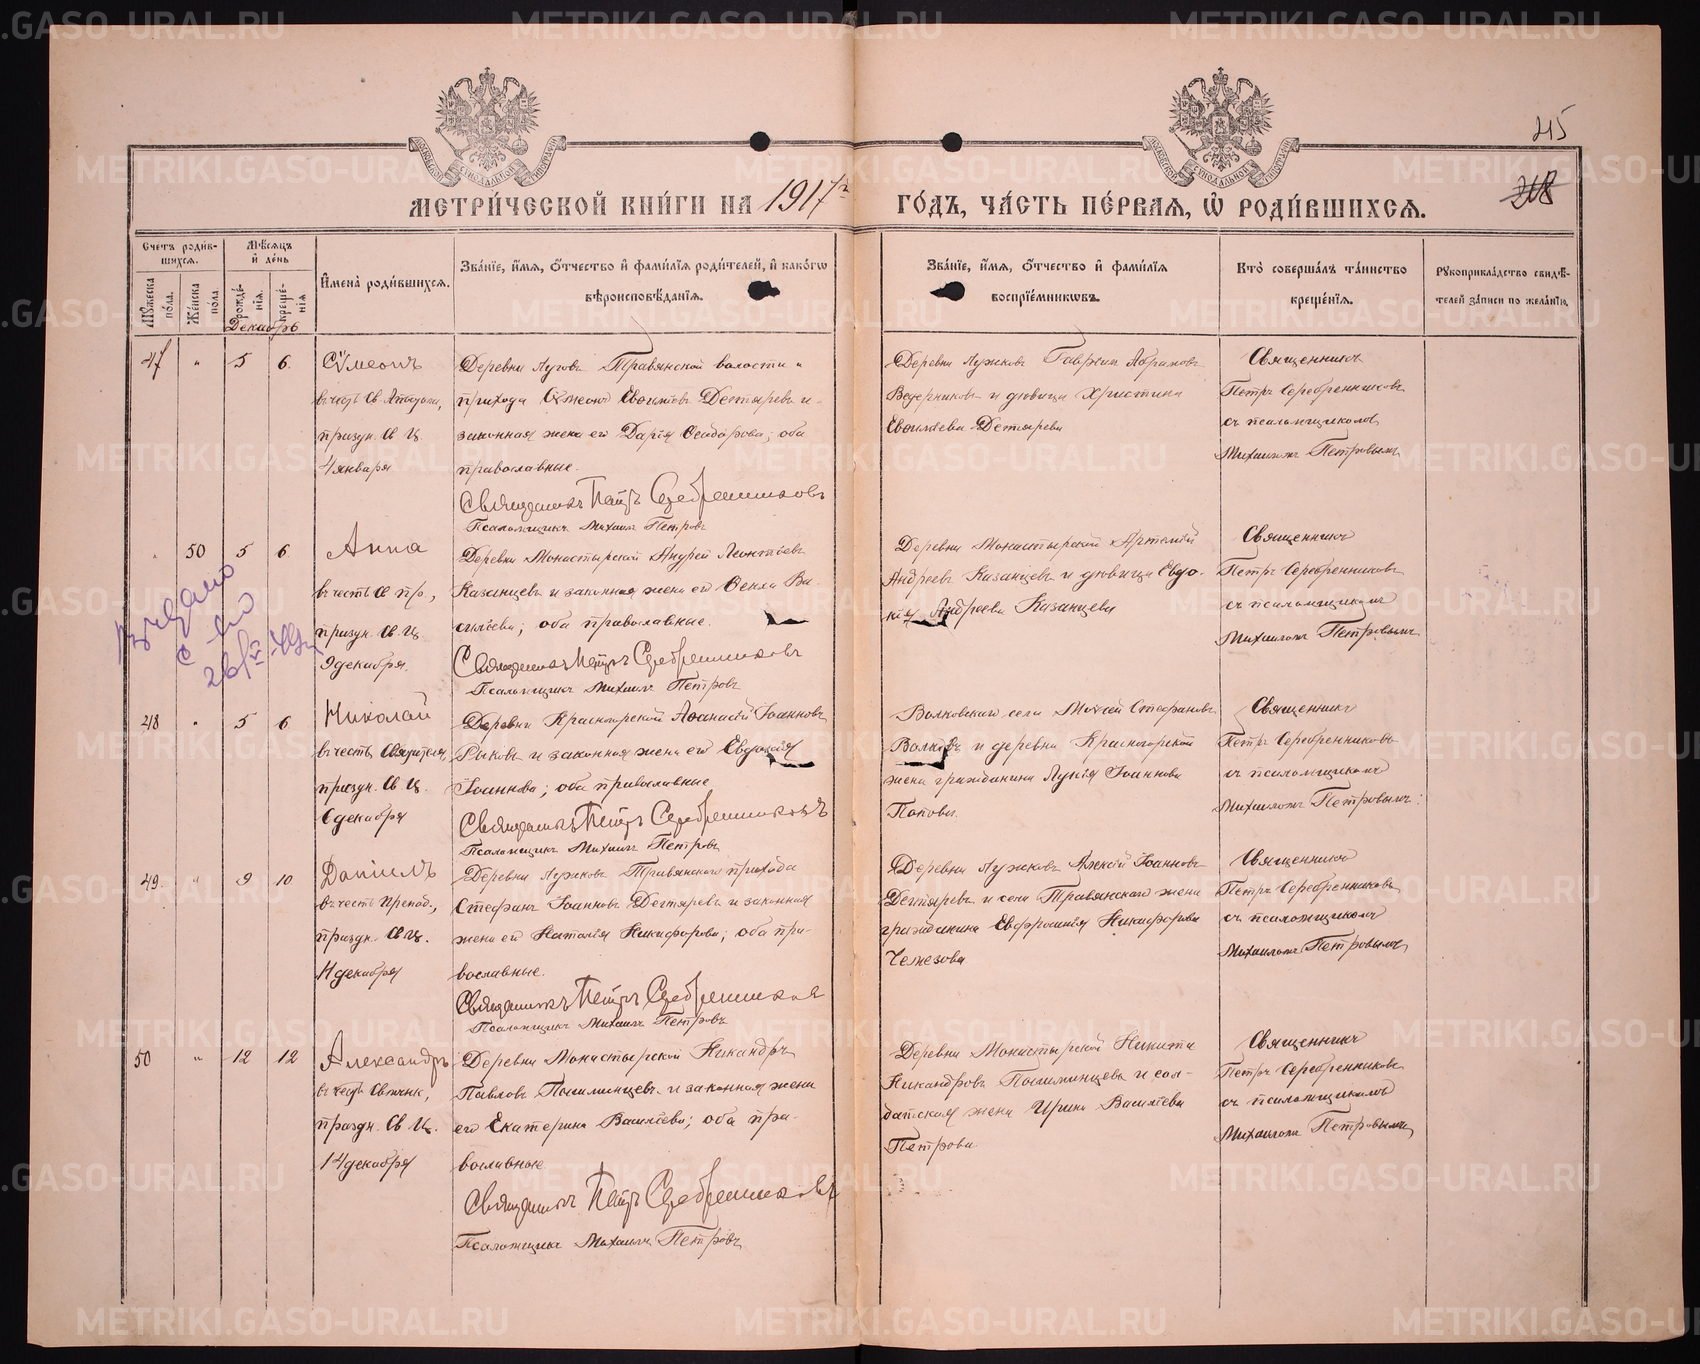 215
218
МЕТРИ́ЧЕСКОЙ КНИ́ГИ НА 1917 г ГО́ДЪ, ЧА́СТЬ ПЕ́РВАЯ, Ѡ РОДИ́ВШИХСЯ.
Счетъ роди́вшихся.
Му́жеска по́ла.
Же́нска по́ла
Мѣ́сяцъ и де́нь
рожде́нїя.
креще́нїя
Имена̀ роди́вшихся.
Зва́нїе, и́мя, о́тчество и фами́лїя роди́телей, и како́гѡ
вѣроисповѣ́данїя.
Зва́нїе, и́мя, о́тчество и фами́лїя
воспрїе́мникѡвъ.
Кто̀ соверша́лъ та́инство
креще́нїя.
Рукоприкла́дство свидѣ́телей за́писи по жела́нїю.
Декабрь
47 " 5 6
Сѵмеонъ
въ честь Св.
праздн. Св Ц.
4 января
Деревни Травянской волости и
прихода Сѵмеонъ Дегтяревъ и
законная жена его Дарія Исидорова; оба
православные.
Священникъ Петръ Серебренниковъ
Псаломщикъ Михаилъ Петровъ
Деревни Лужковъ Гавріилъ
Ведерниковъ и дѣвица Христина
Дегтярева
Священникъ
Петръ Серебренниковъ
съ псаломщикомъ
Михаиломъ Петровымъ
" 50 5 6
Анна
въ честь Св пр.,
праздн. Св Ц.
9 декабря.
Деревни Монастырской Андрей Леонтіевъ
Казанцевъ и законная жена его Ѳекла Ва-
силіева; оба православные.
Священникъ Петръ Серебренниковъ
Псаломщикъ Михаилъ Петровъ
Деревни Монастырской Артемій
Андреевъ Казанцевъ и дѣвица Евдо-
кія Андреева Казанцева
Священникъ
Петръ Серебренниковъ
съ псаломщикомъ
Михаиломъ Петровымъ
48 " 5 6
Николай
въ честь Святителя,
праздн. Св Ц.
6 декабря
Деревни Красногорской Аѳанасій Іоанновъ
Рыковъ и законная жена его Евдокія
Іоаннова; оба православные
Священникъ Петръ Серебренниковъ
Псаломщикъ Михаилъ Петровъ
Волковскаго села Моѵсей Стефановъ
Волковъ и деревни Красногорской
жена гражданина Лукія Іоаннова
Попова.
Священникъ
Петръ Серебренниковъ
съ псаломщикомъ
Михаиломъ Петровымъ
49. " 9 10
Даніилъ
въ честь Препод.,
праздн. Св Ц.
11 декабря
Деревни Лужковъ Травянскаго прихода
Стефанъ Іоанновъ Дегтяревъ и законная
жена его Наталія Никифорова; оба пра-
вославные.
Священникъ Петръ Серебренниковъ
Псаломщикъ Михаилъ Петровъ
Деревни Лужковъ Алексій Іоанновъ
Дегтяревъ и села Травянскаго жена
гражданина Евфросинія Никифорова
Чемезова
Священникъ
Петръ Серебренниковъ
съ псаломщикомъ
Михаиломъ Петровымъ
50 " 12 12
Александръ
въ честь
праздн. Св Ц.
14 декабря
Деревни Монастырской Никандръ
Павловъ Пошминцевъ и законная жена
его Екатерина Василіева; оба пра-
вославные
Священникъ Петръ Серебренниковъ
Псаломщикъ Михаилъ Петровъ
Деревни Монастырской Никита
Никандровъ Пошминцевъ и сол-
датская жена Ирина Василіева
Петрова
Священникъ
Петръ Серебренниковъ
съ псаломщикомъ
Михаиломъ Петровымъ
METRIKI.GASO-URAL.RU